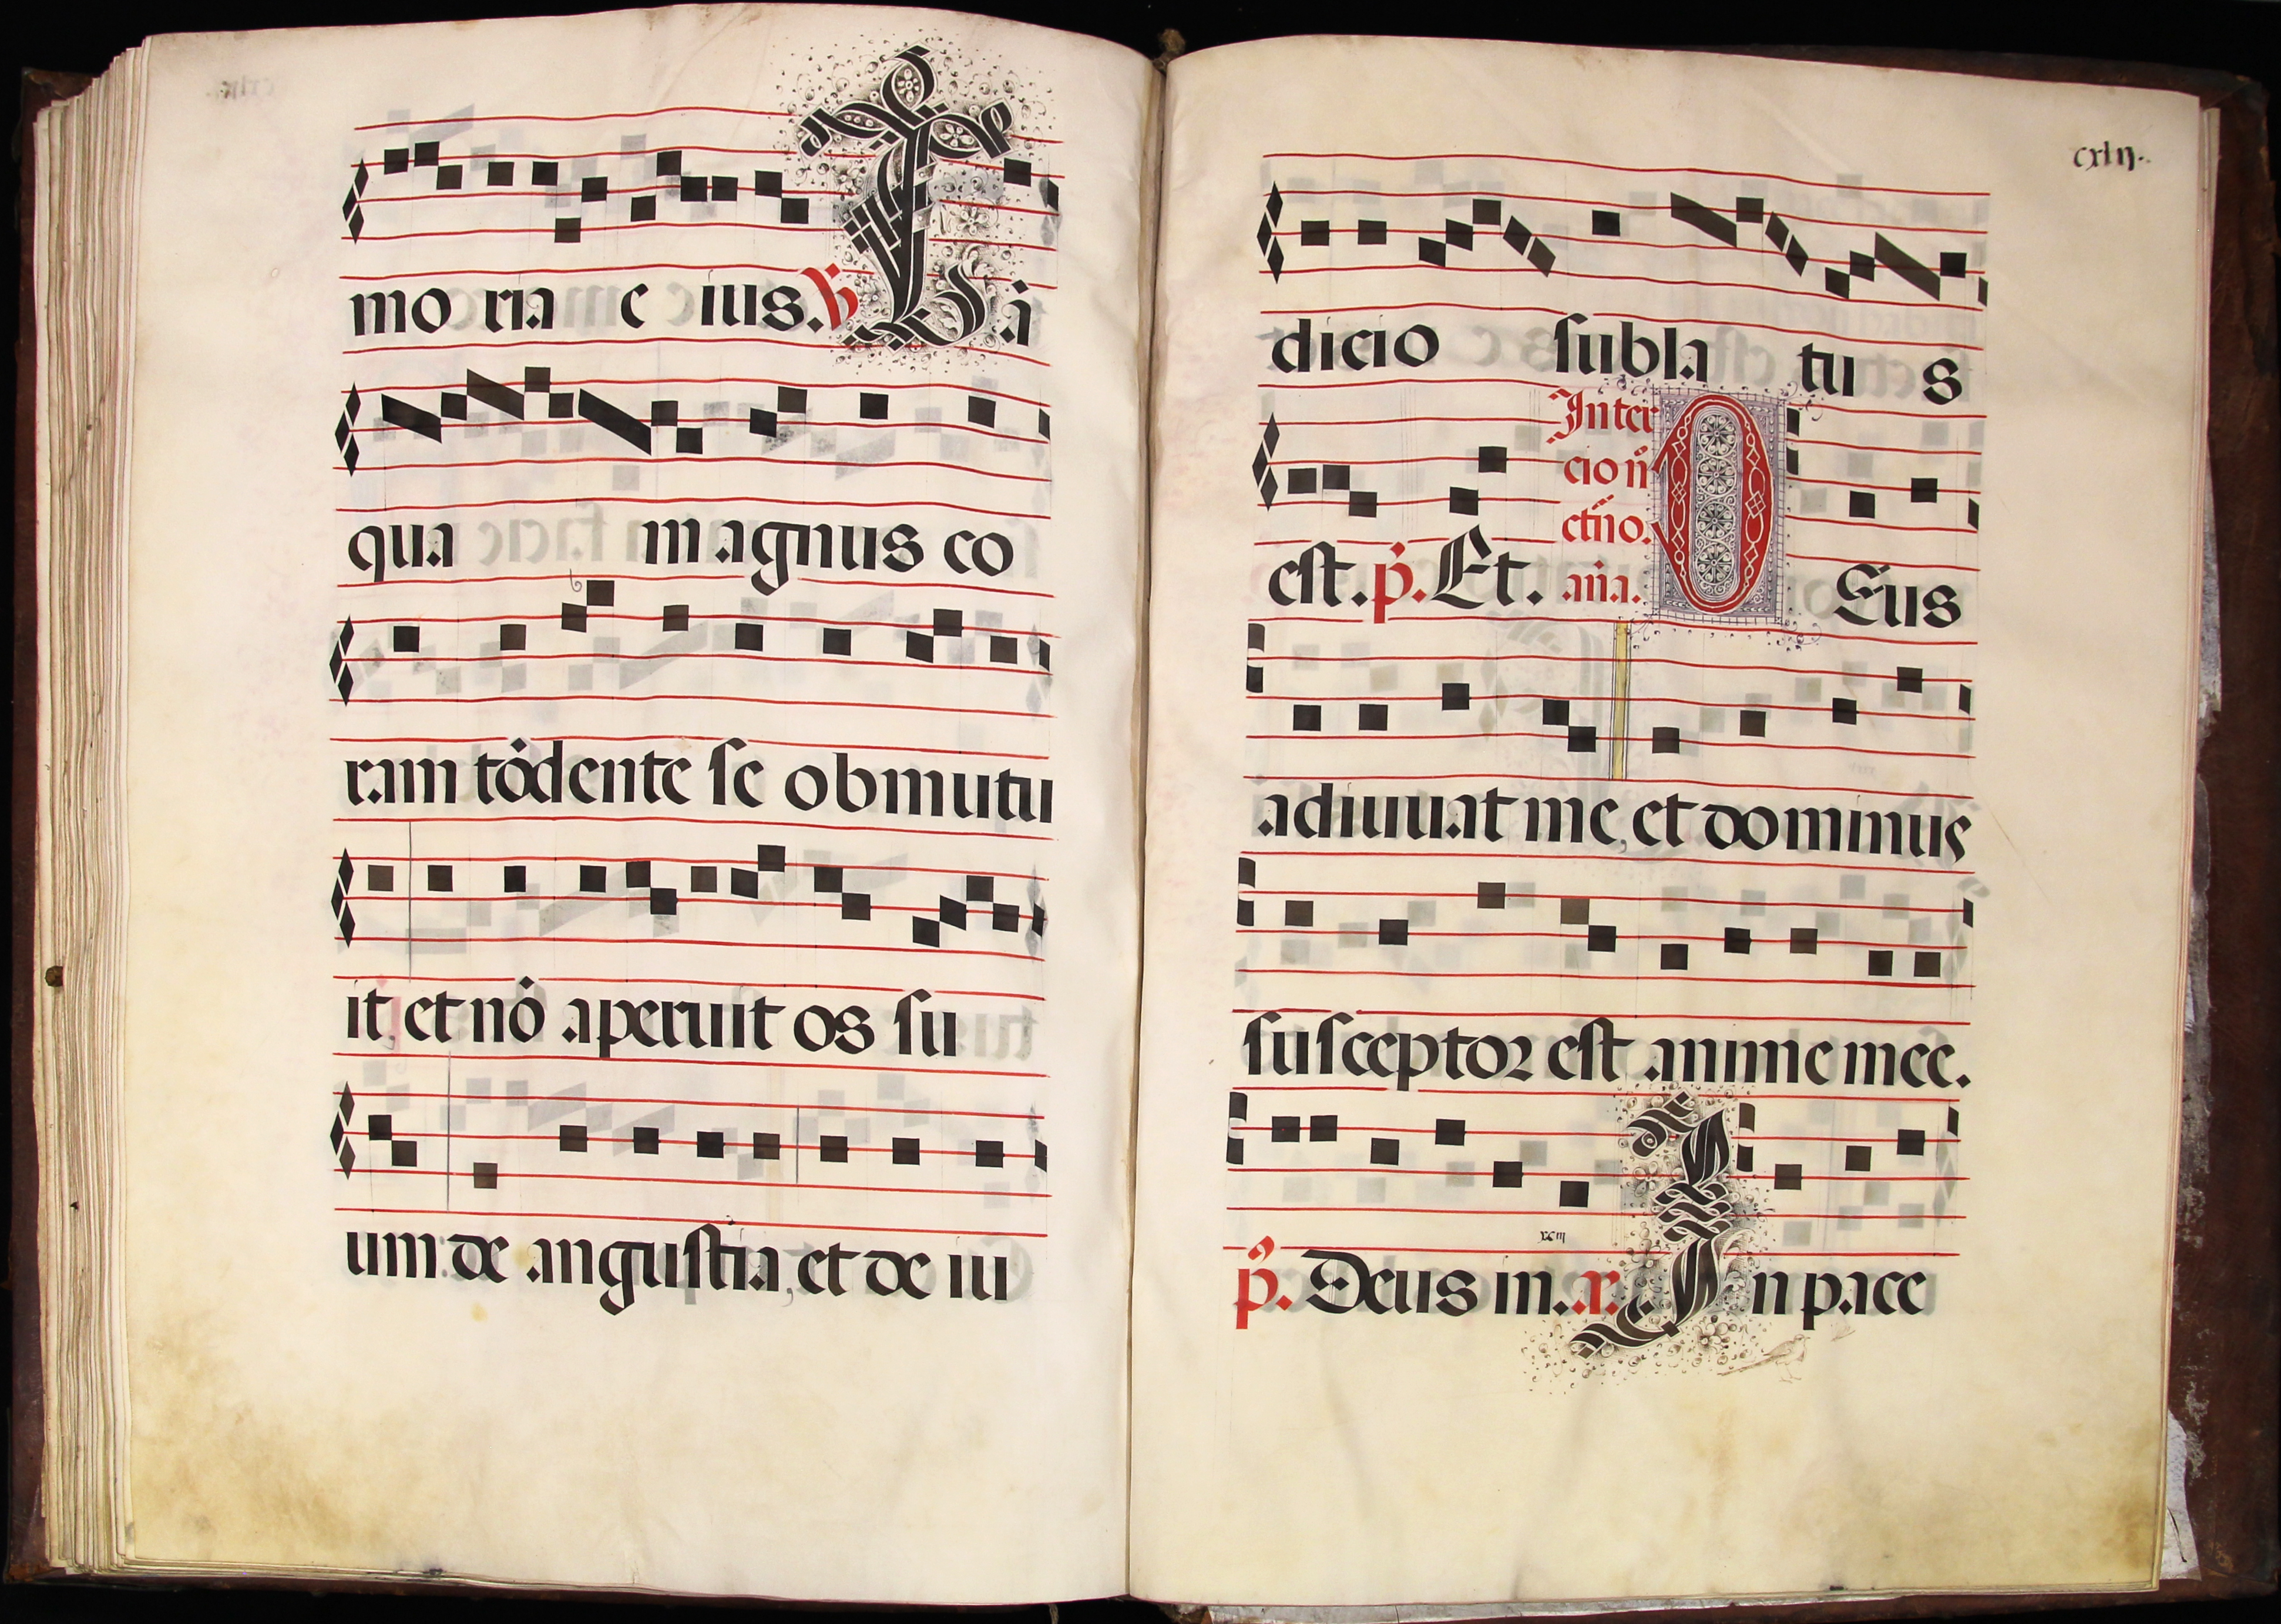 mo ria e ius. ℣ Tā
qua magnus co
ram tōdente se obmutu
it, et nō aperuit os su
um: de angustia, et de iu
cxlij.
dicio subla tu s
est. p̄. Et. Inter
cio n̄
ct̄no.
añа. DEus
adiuuat me, et dominus
susceptor est anime mee.
xciij
p̄s. Deus in. r. In pace